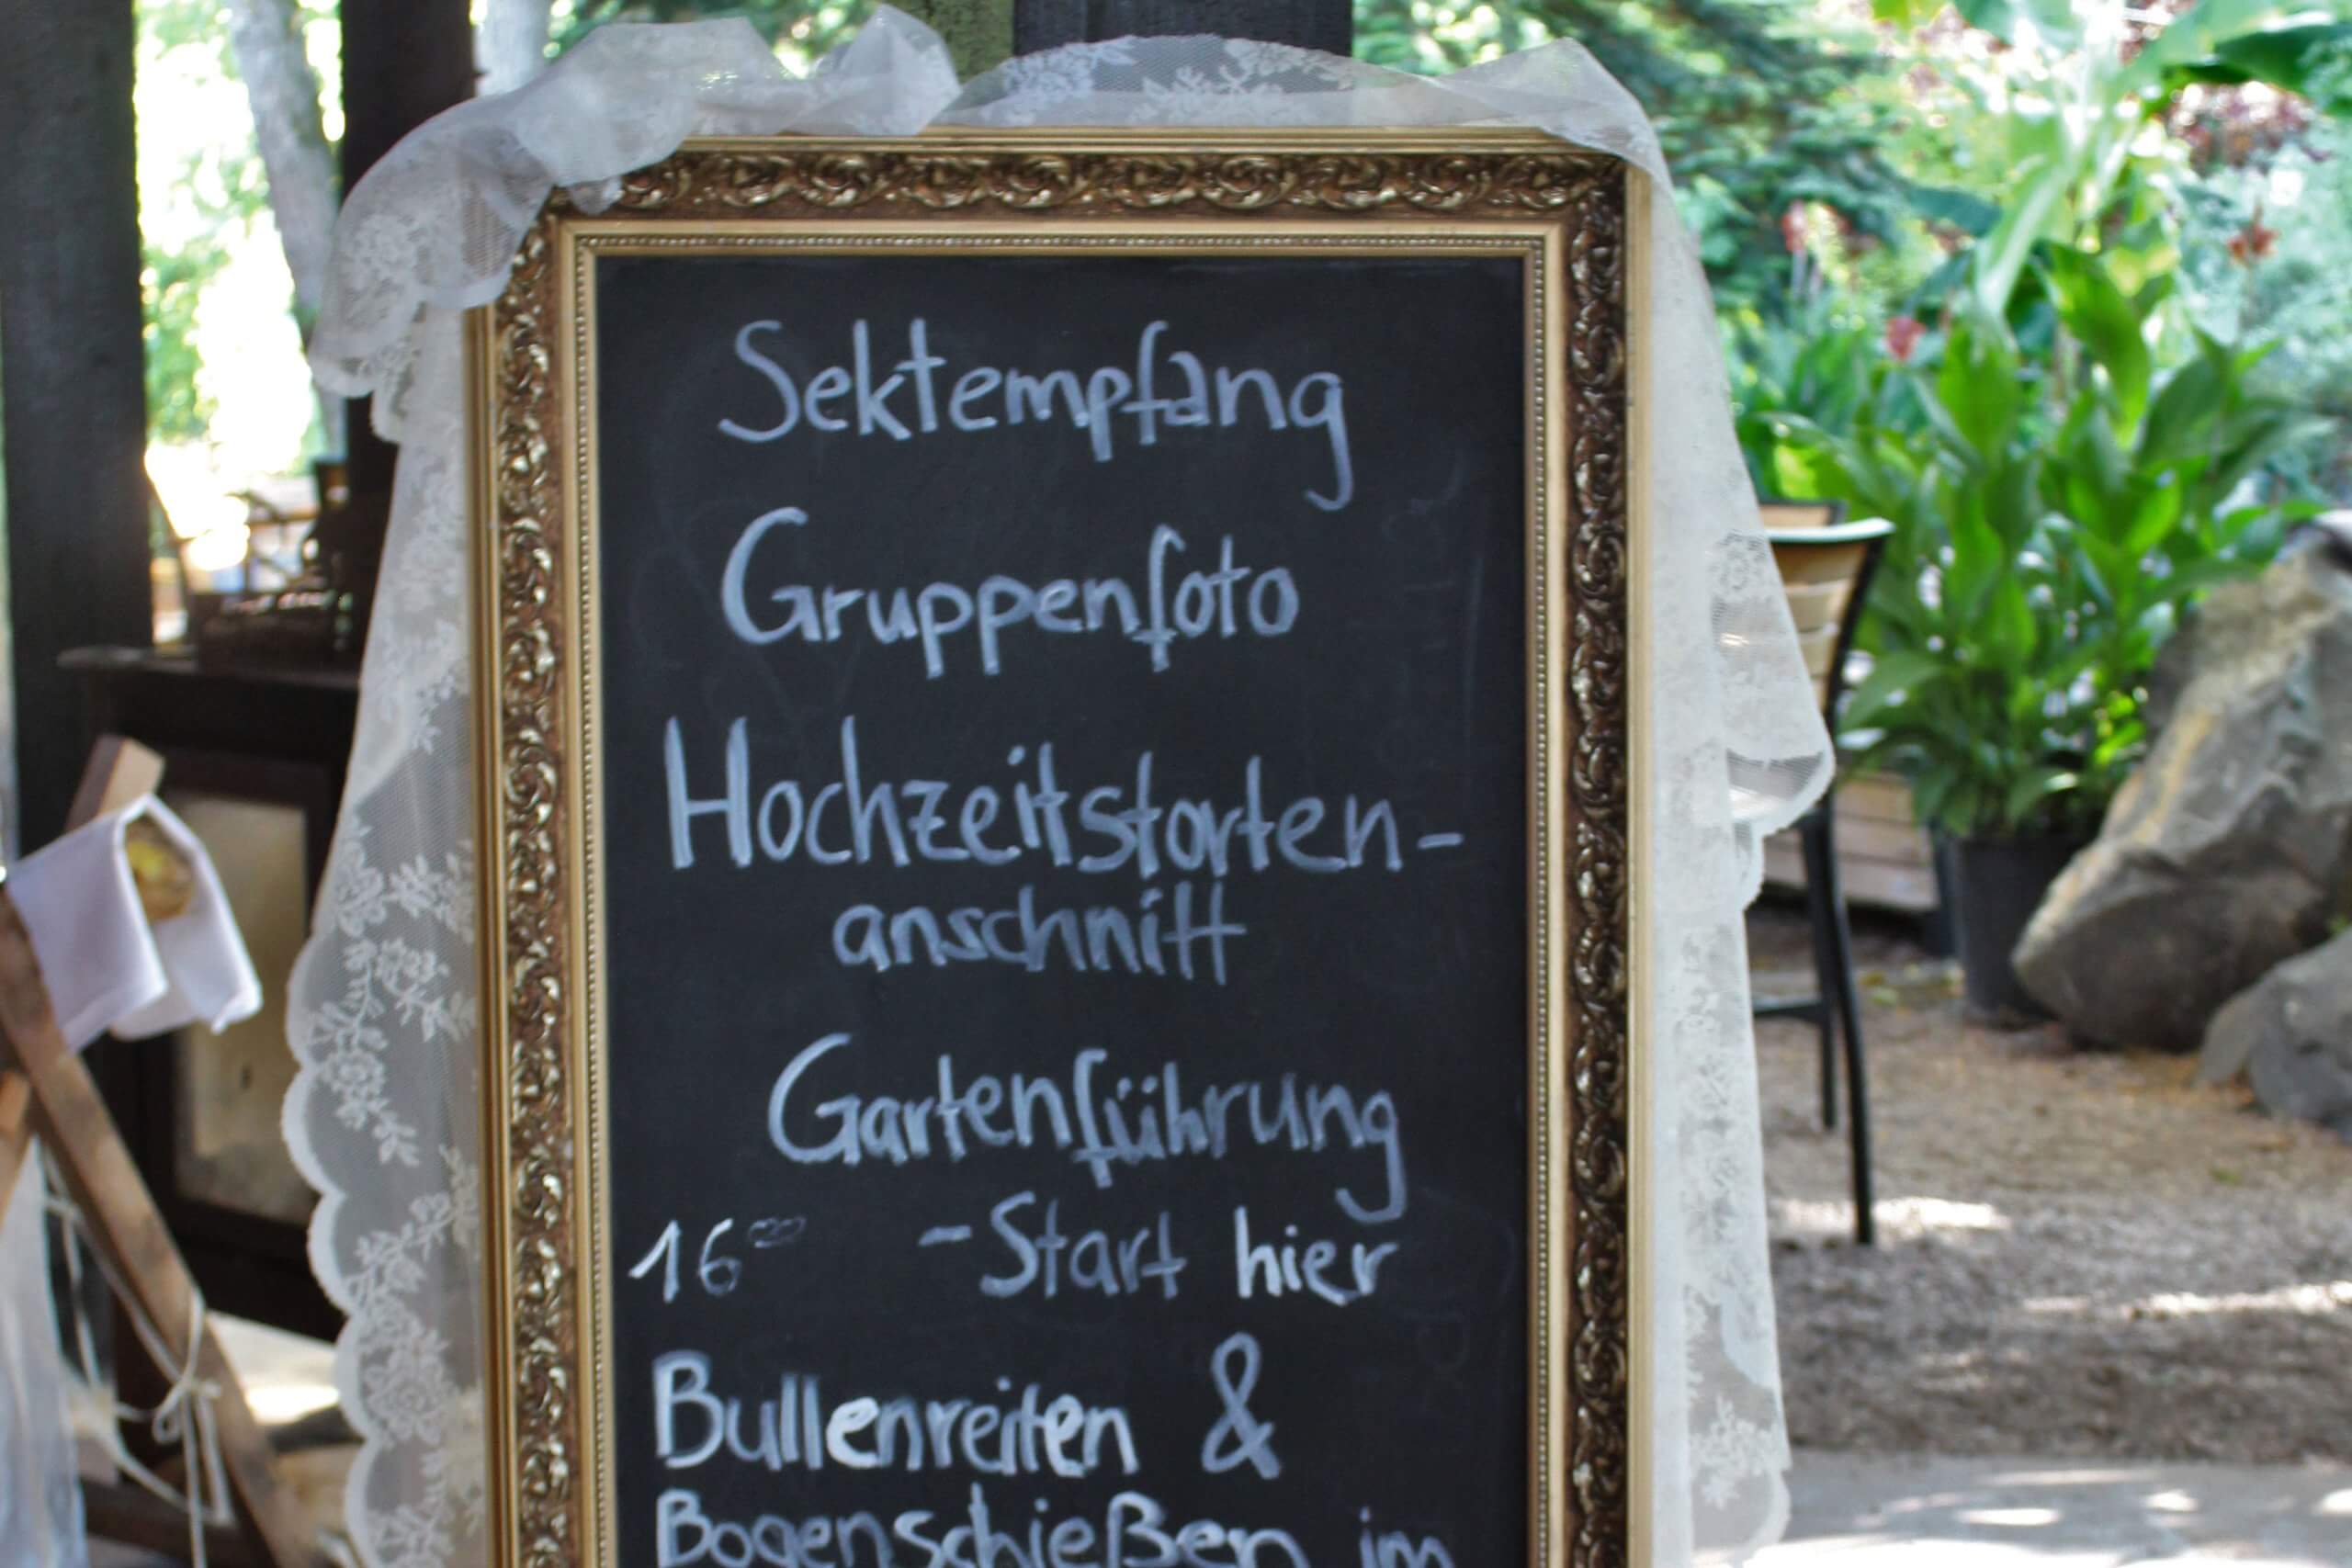 Sektempfang
Gruppenfoto
Hochzeitstorten-
anschnitt
Gartenführung
16⁰⁰ -Start hier
Bullenreiten &
Bogenschießen im